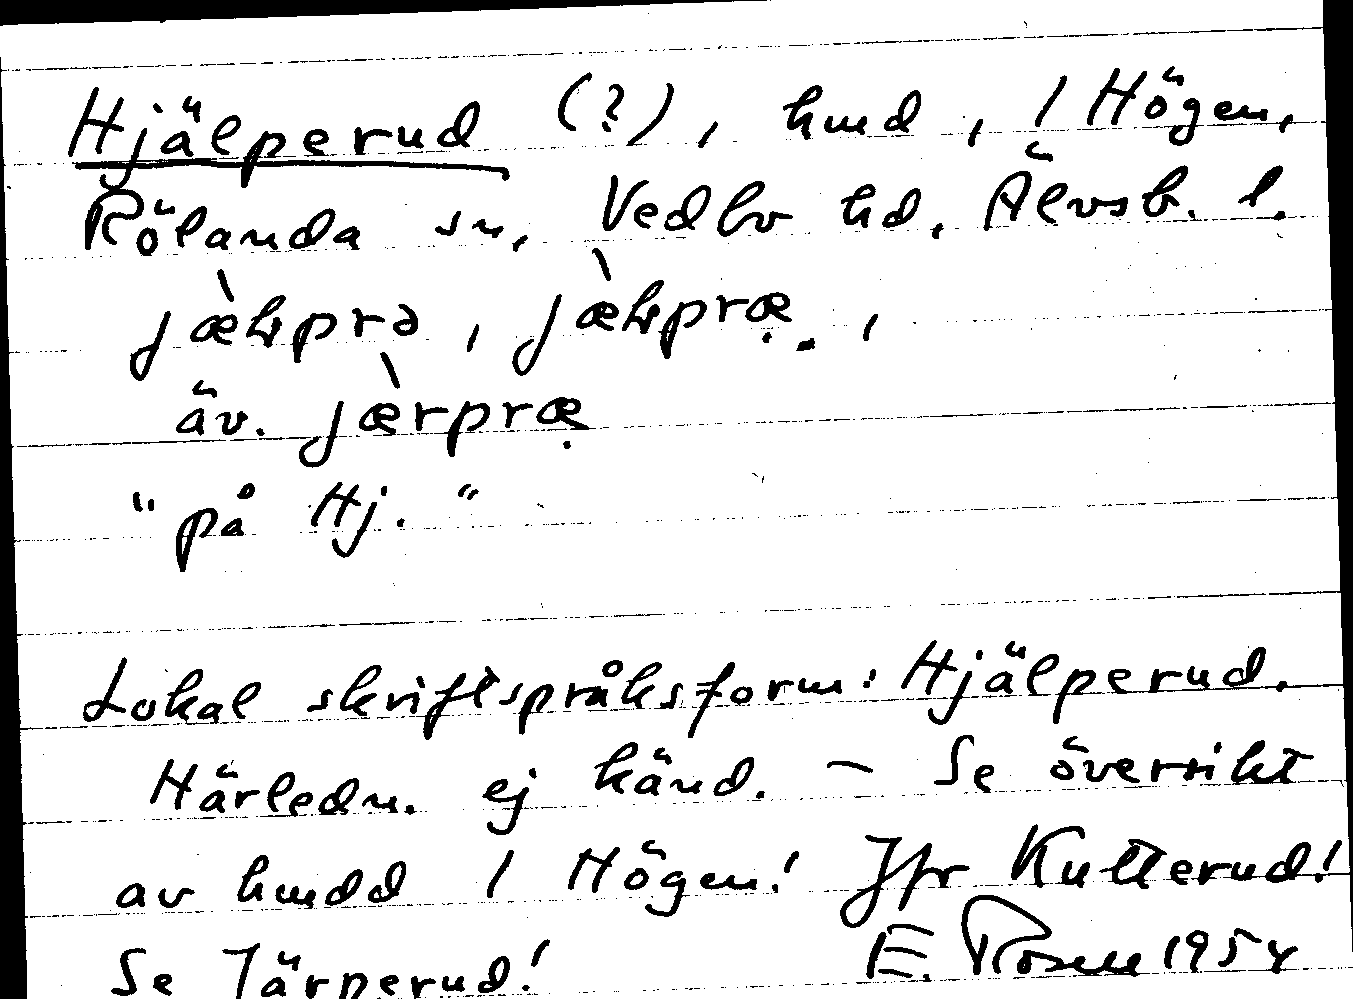 Hjälperud (?), hmd, 1 Högen,
Rölanda sn, Vedbo hd, Älvsb. l.
jæ̀ḷprə, jæ̀ḷpræ̣.,
äv. jæ̀rpræ̣
"på Hj."
Lokal skriftspråksform: Hjälperud.
Härledn. ej känd. – Se översikt
av hmdd 1 Högen! Jfr Kutterud!
Se Järperud! E. Rosell 1954